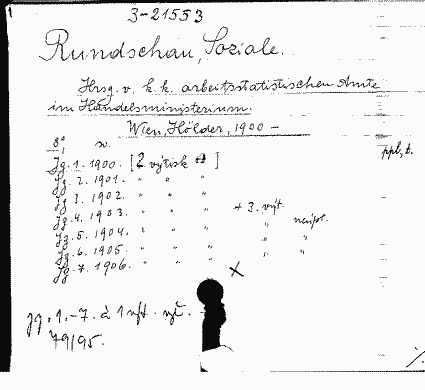 3-21553
Rundschau, Soziale.
Hrsg. v. k. k. arbeitsstatistischen Amte
im Handelsministerium.
Wien, Hölder, 1900 -
8° w. ppl, t.
Jg. 1. 1900. [2 výtisk ]
Jg. 2. 1901. " " "
Jg. 3. 1902. " " "
Jg. 4. 1903. " " " + 3. výt. neúpl.
Jg. 5. 1904. " " " " "
Jg. 6. 1905. " " " " "
Jg. 7. 1906. " " " X
jg. 1.-7. à 1 výt.
79/95.